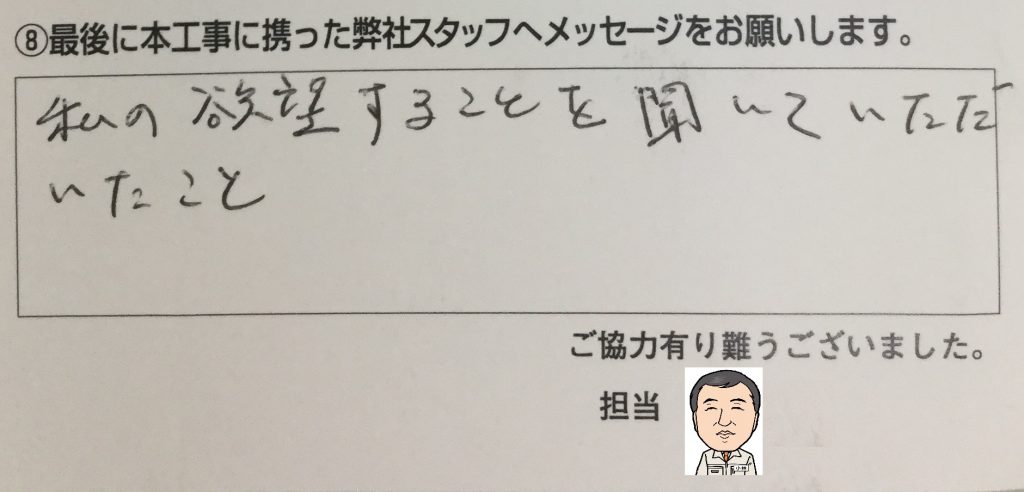 ⑧最後に本工事に携った弊社スタッフへメッセージをお願いします。
私の欲望することを聞いていただ
いたこと
ご協力有り難うございました。
担当